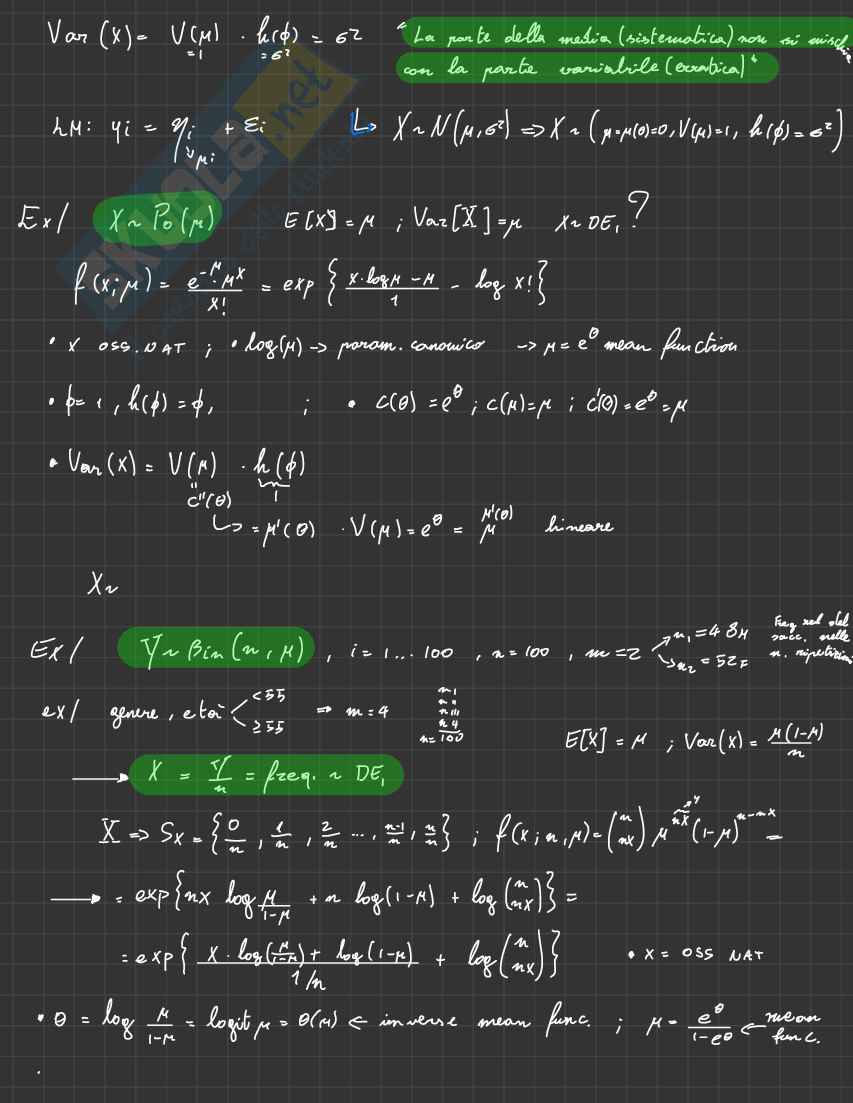 Var(X) = V(μ) · h(ϕ) = σ²
=1 =σ²
"La parte della media (sistematica) non si mischia
con la parte variabile (erratica)"
LM: yi = ηi + εi ↳ X ~ N(μ, σ²) ⇒ X ~ (μ=μ(θ)=0, V(μ)=1, h(ϕ)=σ²)
↘ μi
Ex/ X ~ Po(μ) E[X] = μ ; Var[X] = μ X ~ DE₁ ?
f(x; μ) = e^{-μ} · μ^x / x! = exp { (x · log μ - μ) / 1 - log x! }
• X OSS. NAT ; • log(μ) → param. canonico → μ = e^θ mean function
• ϕ = 1, h(ϕ) = ϕ, ; • c(θ) = e^θ ; c(μ) = μ ; c'(θ) = e^θ = μ
• Var(X) = V(μ) · h(ϕ)
" c''(θ) 1
↳ = μ'(θ) · V(μ) = e^θ = μ lineare
μ'(θ)
X ~
Ex/ Y ~ Bin(n, μ), i = 1 ... 100, n = 100, m = 2 ↗ n₁ = 48 M ↘ n₂ = 52 F
Freq rel del
succ. nelle
n. ripetizioni
ex/ genere, età < <55 ≥55 ⇒ m = 4
n I
n II
n III
n 4
n = 100
E[X] = μ ; Var(X) = μ(1-μ) / n
→ X = Y/n = freq. ~ DE₁
X ⇒ Sx = {0/n, 1/n, 2/n ..., n-1/n, n/n} ; f(x; n, μ) = (n nx) μ^{nx → y} (1-μ)^{n-nx} =
→ = exp{nx log μ/(1-μ) + n log(1-μ) + log (n nx)} =
= exp{ (x · log(μ/(1-μ)) + log(1-μ)) / (1/n) + log (n nx) } • X = OSS NAT
• θ = log μ/(1-μ) = logit μ = θ(μ) ← inverse mean func. ; μ = e^θ / (1-e^θ) ← mean func.
.
SKUOLA.net